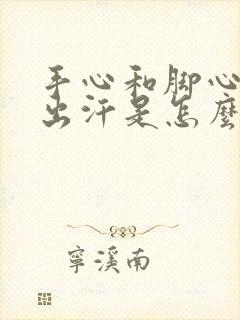 手心和脚心
出汗是怎麽
寧溪南